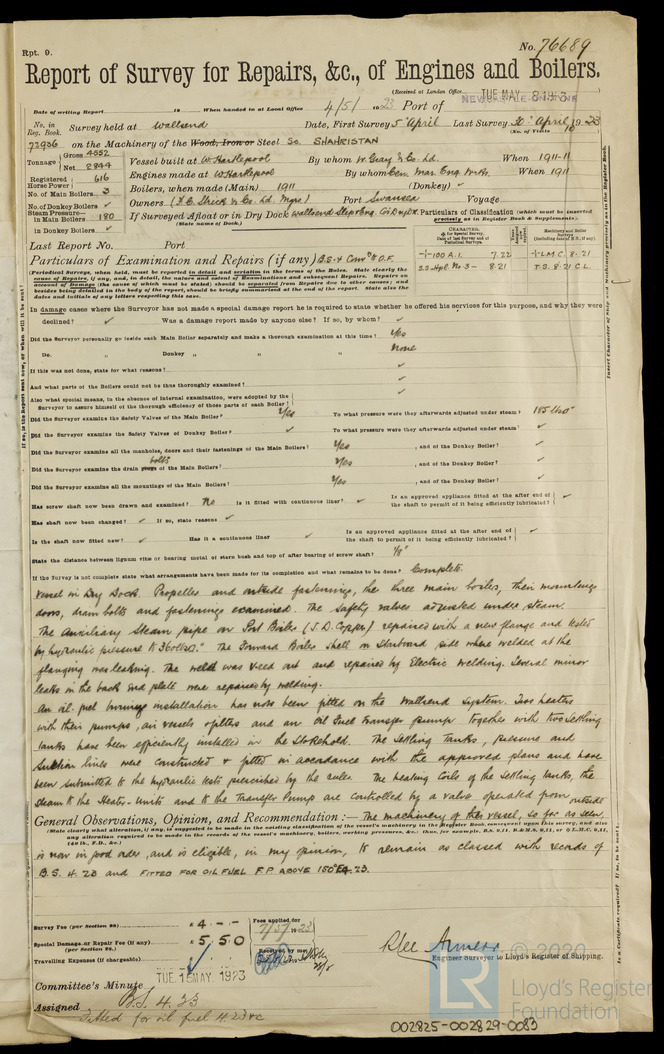 Rpt. 9.
No. 76689
Report of Survey for Repairs, &c., of Engines and Boilers.
(Received at London Office TUE MAY 8 1923
NEWCASTLE-ON-TYNE
Date of writing Report 19 When handed in at Local Office 4/5/ 1923 Port of
No. in Reg. Book. Survey held at Wallsend Date, First Survey 5th April Last Survey 30th April 1923
(No. of Visits 10
72936 on the Machinery of the Wood, Iron or Steel S.S. SHAHRISTAN
Tonnage Gross 4552 Net 2844
Vessel built at W. Hartlepool By whom W. Gray & Co. Ld. When 1911-11
Registered Horse Power 616 Engines made at W. Hartlepool By whom Cen. Mar. Eng. Wks. When 1911
No. of Main Boilers 3 Boilers, when made (Main) 1911 (Donkey) ✓
No. of Donkey Boilers ✓ Owners (F. C. Strick & Co. Ld. Mgrs.) Port Swansea Voyage
Steam Pressure in Main Boilers 180 If Surveyed Afloat or in Dry Dock Wallsend Slip & Eng. Co. Dry Dk.
(State name of Dock.)
in Donkey Boilers ✓
Particulars of Classification (which must be inserted precisely as in Register Book & Supplements).
Last Report No. Port
CHARACTER. Machinery and Boiler Surveys
+100 A.1. 7.22 +L.M.C. 8.21
S.S. Npl. No. 3 - 8.21 T.S. 8.21 C.L.
Particulars of Examination and Repairs (if any) B.S. & Conv. to O.F.
(Periodical Surveys, when held, must be reported in detail and seriatim in the terms of the Rules. State clearly the cause of Repairs, if any, and, in detail, the nature and extent of Examinations and subsequent Repairs. Repairs on account of Damage (the cause of which must be stated) should be separated from Repairs due to other causes; and besides being detailed in the body of the report, should be briefly summarized at the end of the report. State also the dates and initials of any letters respecting this case.
In damage cases where the Surveyor has not made a special damage report he is required to state whether he offered his services for this purpose, and why they were
declined? ✓ Was a damage report made by anyone else? If so, by whom? ✓
Did the Surveyor personally go inside each Main Boiler separately and make a thorough examination at this time? Yes
Do. „ Donkey „ „ „ None
If this was not done, state for what reasons? ✓
And what parts of the Boilers could not be thus thoroughly examined? ✓
Also what special means, in the absence of internal examination, were adopted by the Surveyor to assure himself of the thorough efficiency of those parts of each Boiler? ✓
Did the Surveyor examine the Safety Valves of the Main Boiler? Yes To what pressure were they afterwards adjusted under steam? 185 lbs
Did the Surveyor examine the Safety Valves of Donkey Boiler? ✓ To what pressure were they afterwards adjusted under steam? ✓
Did the Surveyor examine all the manholes, doors and their fastenings of the Main Boilers? Yes , and of the Donkey Boiler? ✓
Did the Surveyor examine the drain plugs bolts of the Main Boilers? Yes , and of the Donkey Boiler? ✓
Did the Surveyor examine all the mountings of the Main Boilers? Yes , and of the Donkey Boiler? ✓
Has screw shaft now been drawn and examined? No Is it fitted with continuous liner? ✓ Is an approved appliance fitted at the after end of the shaft to permit of it being efficiently lubricated? ✓
Has shaft now been changed? ✓ If so, state reasons ✓
Is the shaft now fitted new? ✓ Has it a continuous liner ✓ Is an approved appliance fitted at the after end of the shaft to permit of it being efficiently lubricated? ✓
State the distance between lignum vitæ or bearing metal of stern bush and top of after bearing of screw shaft? 1/8"
If the Survey is not complete state what arrangements have been made for its completion and what remains to be done? Complete.
Vessel in Dry Dock. Propeller and outside fastenings, the three main boilers, their mountings
doors, drain bolts and fastenings examined. The safety valves adjusted under steam.
The Auxiliary Steam pipe on Port Boiler (S.D. Copper) repaired with a new flange and tested
by hydraulic pressure to 360 lbs □". The Forward Boiler Shell on Starboard side where welded at the
flanging was leaking. The weld was veed out and repaired by Electric welding. Several minor
leaks in the back end plate were repaired by welding.
An oil fuel burning installation has now been fitted on the Wallsend System. Two heaters
with their pumps, air vessels & filters and an Oil Fuel Transfer pump together with two Settling
tanks have been efficiently installed in the Stokehold. The Settling Tanks, pressure and
Suction lines were constructed & fitted in accordance with the approved plans and have
been submitted to the hydraulic tests prescribed by the rules. The heating Coils of the Settling tanks, the
Steam to the Heater Units and to the Transfer Pump are controlled by a valve operated from outside
General Observations, Opinion, and Recommendation :— The machinery of this vessel, so far as seen
(State clearly what alteration, if any, is suggested to be made in the existing classification of the vessel's machinery in the Register Book, consequent upon this survey, and also
is now in good order, and is eligible, in my opinion, to remain as classed with records of
B.S. 4.23 and FITTED FOR OIL FUEL F.P. ABOVE 150°F 4.23.
Survey Fee (per Section 28) £ 4 - - Fees applied for 7/5/ 1923
Special Damage or Repair Fee (if any) (per Section 28.) £ 5 5 0 Received by me,
Travelling Expenses (if chargeable)
Engineer Surveyor to Lloyd's Register of Shipping.
Committee's Minute TUE 15 MAY 1923
Assigned B.S. 4.23
Fitted for oil fuel 4.23 &c
002825-002829-0083
© 2020
LR
Lloyd's Register
Foundation